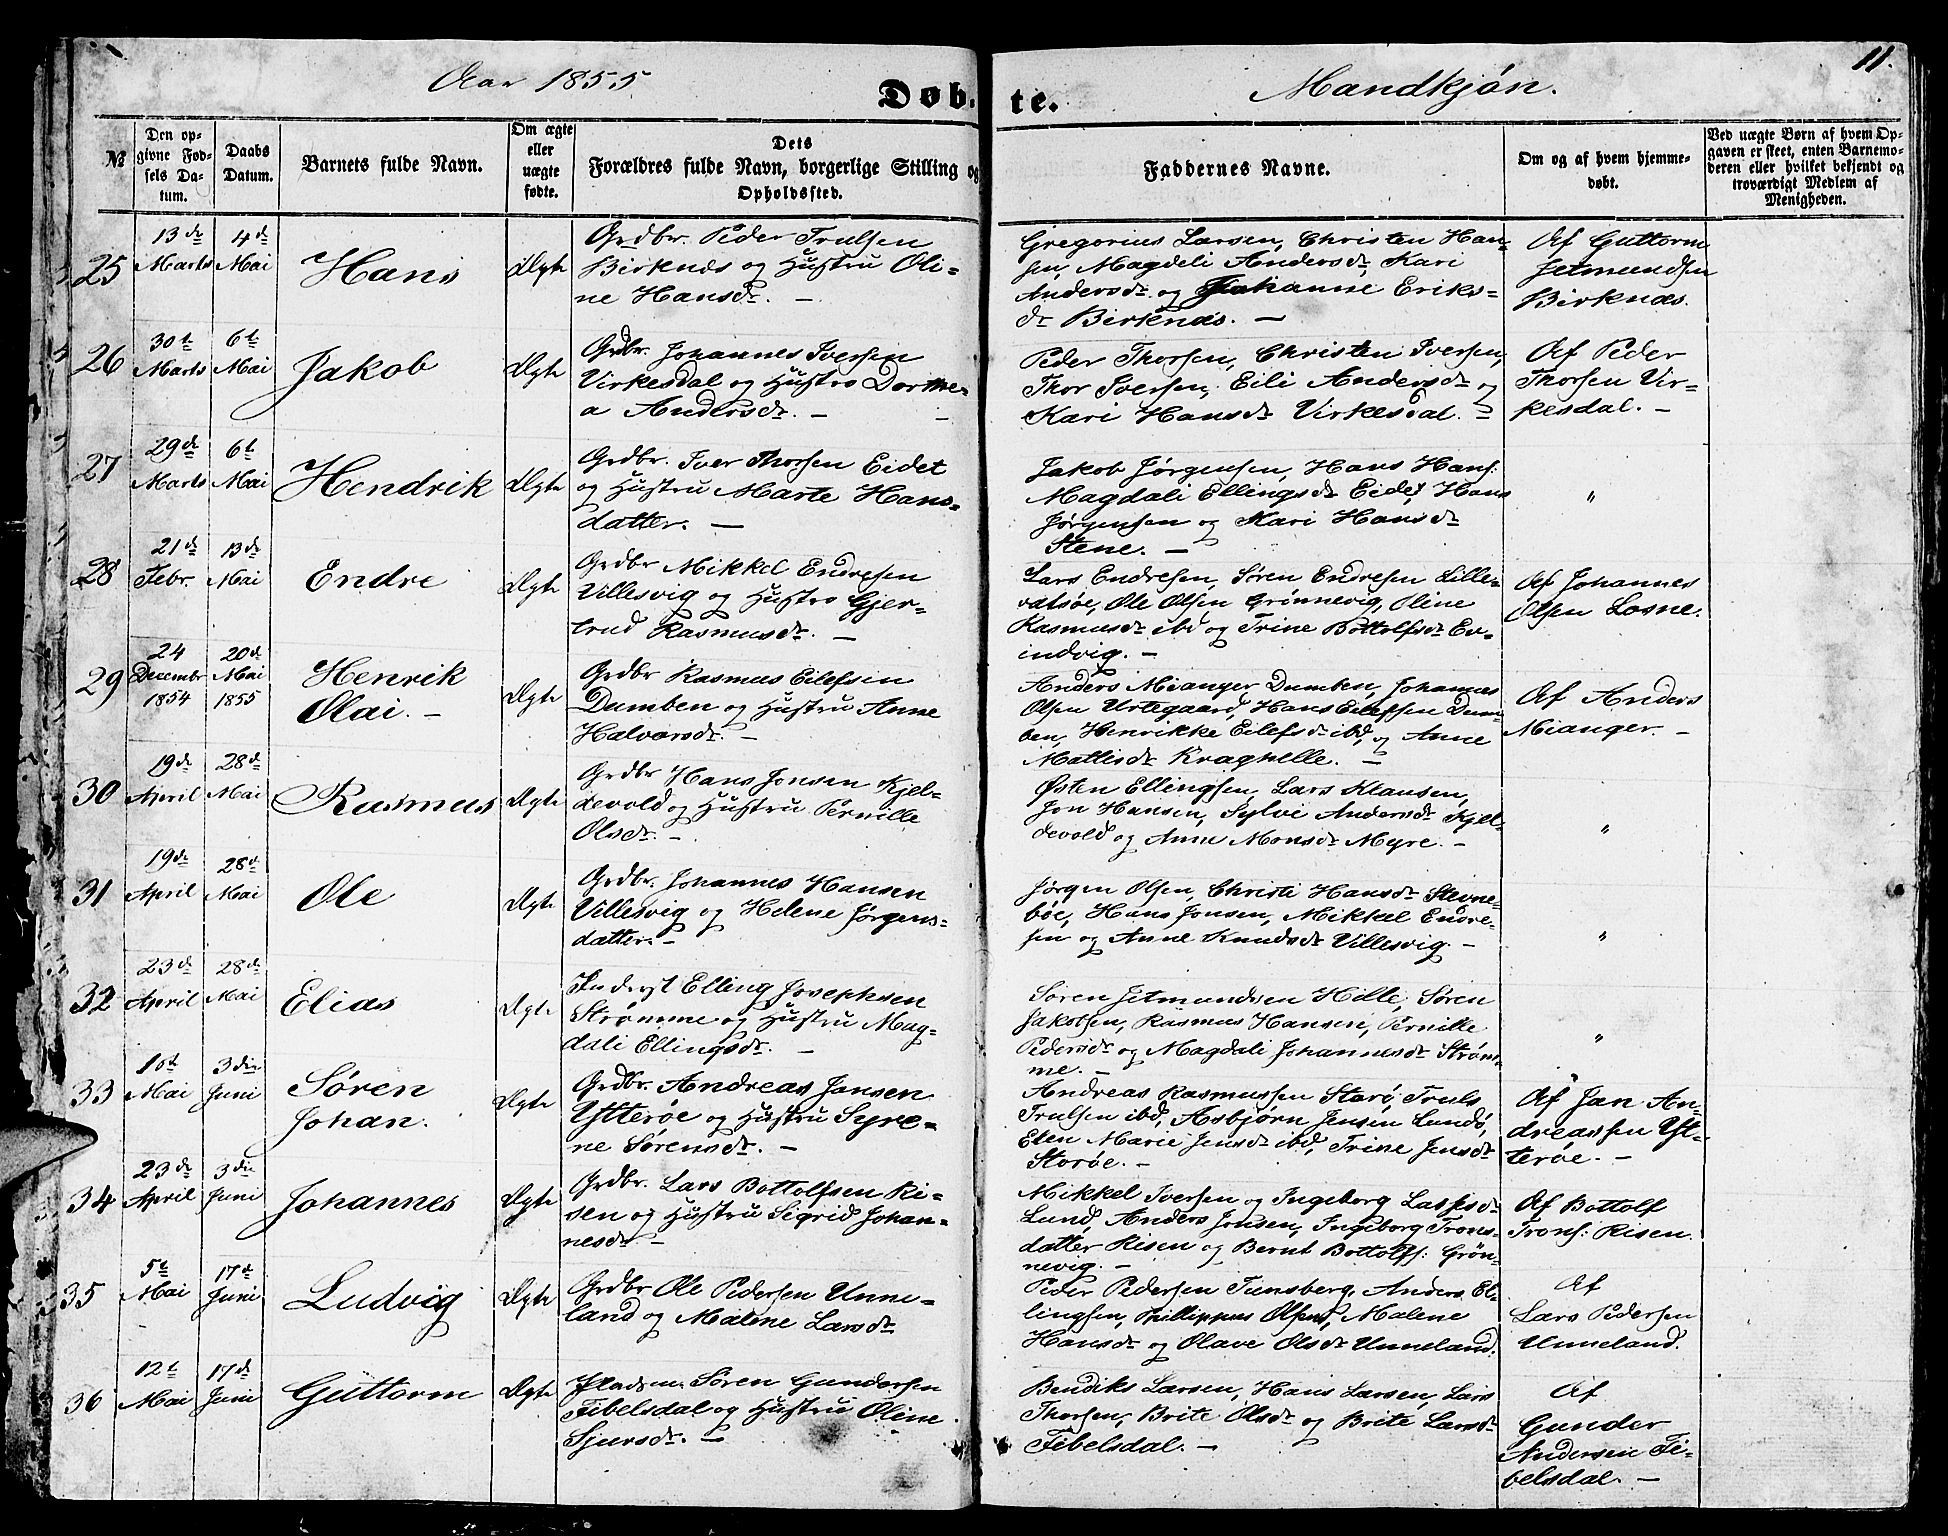 11.
Aar 1855
Døb-
te.
Mandkjøn.
№
Den op-
givne Fød-
sels Da-
tum.
Daabs
Datum.
Barnets fulde Navn.
Om ægte
eller
uægte
fødte.
Dets
Forældres fulde Navn, borgerlige Stilling og
Opholdssted.
Faddernes Navne.
Om og af hvem hjemme-
døbt.
Ved uægte Børn af hvem Op-
gaven er skeet, enten Barnemo-
deren eller hvilket bekjendt og
troværdigt Medlem af
Menigheden.
25
13de
Marts
4de
Mai
Hans
Ægte
Grdbr. Peder Trulsen
Birknæs og Hustru Oli-
ne Hansdr. –
Gregorius Larsen, Christen Han-
sen, Magdeli Andersdr. Kari
Andersdr. og Johanne Eriks-
dr Birknæs. –
Af Guttorm
Jetmundsen
Birknæs.
26
30te
Marts
6te
Mai
Jakob
Ægte
Grdbr. Johannes Iversen
Virkesdal og Hustro Dorthe-
a Andersdr. –
Peder Thorsen, Christen Iversen,
Thor Iversen, Eili Andersdr og
Kari Hansdr Virkesdal. –
Af Peder
Thorsen Vir-
kesdal. –
27
29de
Marts
6te
Mai
Hendrik
Ægte
Grdbr. Iver Thorsen Eidet
og Hustru Marte Hans-
datter. –
Jakob Jørgensen, Hans Hans:
Magdali Ellingsdr Eidet Hans
Jørgensen og Kari Hansdr
Stene. –
"
28
21de
Febr.
13de
Mai
Endre
Ægte
Grdbr Mikkel Endresen
Villesvig og Hustro Gjer-
trud Rasmusdr. –
Lars Endresen, Søren Endresen Lille-
vatsøe, Ole Olsen Grønnevig, Oline
Rasmusdr ibd og Trine Bottolfsdr Ev-
indvig. –
Af Johannes
Olsen Losne.
29
24
Decembr
1854
20de
Mai
1855
Henrik
Olai. –
Ægte
Grdbr Rasmus Eilefsen
Dumben og Hustru Anne
Halvorsdr. –
Anders Mianger Dumben, Johannes
Olsen Urtegaard, Hans Eilefsen Dum-
ben, Henrikke Eilefsdr ibd, og Anne
Mattisdr Kraghelle. –
Af Anders
Mianger. –
30
19de
April
28de
Mai
Rasmus
Ægte
Grdbr Hans Jonsen Kjel-
devold og Hustru Pernille
Olsdr. –
Østen Ellingsen, Lars Klausen,
Jon Hansen, Sylvi Andersdr Kjel-
devold og Anne Monsdr Myre. –
"
31
19de
April
28de
Mai
Ole
Ægte
Grdbr. Johannes Hansen
Villesvig og Helene Jørgens-
datter. –
Jørgen Olsen, Christi Hansdr Stevne-
bøe, Hans Jonsen, Mikkel Endre-
sen og Anne Knudsdr Villesvig. –
"
32
23de
April
28de
Mai
Elias
Ægte
Elling Josephsen
Strømme og Hustru Mag-
dali Ellingsdr. –
Søren Jetmundsen Hille, Søren
Jakobsen, Rasmus Hansen, Pernille
Pedersdr og Magdali Johannesdr Strøm-
me. –
"
33
10de
Mai
3die
Juni
Søren
Johan.
Ægte
Grdbr. Andreas Jansen
Ytterøe og Hustru Syre-
ne Sørensdr. –
Andreas Rasmussen Starø, Truls
Trulsen ibd, Asbjørn Jensen Lundø,
Elen Marie Jensdr ibd, Trine Jensdr
Storøe. –
Af Jan An-
dreassen Yt-
terøe. –
34
23de
April
3die
Juni
Johannes
Ægte
Grdbr. Lars Bottolfsen Ri-
sen og Hustru Sigrid Johan-
nesdr –
Mikkel Iversen og Ingeborg Lassesdr
Lund, Anders Jonsen, Ingeborg Trons-
datter Risen og Bernt Bottolfs: Grøn-
nevig. –
Af Bottolf
Trons: Risen.
35
5te
Mai
17de
Juni
Ludvig
Ægte
Grdbr Ole Pedersen Unne-
land og Malene Larsdr
Peder Pedersen Tunsberg, Anders El-
lingsen, Phillippus Olsen, Malene
Hansdr og Olave Olsdr Unneland.
Af
Lars Pedersen
Unneland.
36
12te
Mai
17de
Juni
Guttorm
Ægte
Pladsm. Søren Gundersen
Fibelsdal og Hustru Oline
Sjursdr. –
Bendiks Larsen, Hans Larsen, Lars
Thorsen, Brite Olsdr og Brite Larsdr
Fibelsdal. –
Af
Gunder
Andersen Fi-
belsdal. –